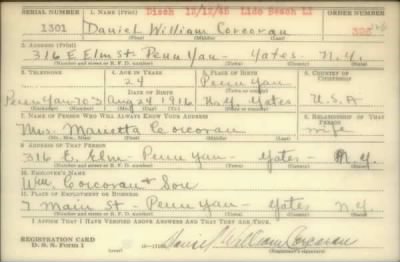 SERIAL NUMBER 1. NAME (Print) Disch 10/12/45 Lido Beach LI ORDER NUMBER
1301 Daniel William Corcoran
(First) (Middle) (Last)
2. ADDRESS (Print)
316 E Elm St Penn Yan - Yates - N.Y.
(Number and street or R. F. D. number) (Town) (County) (State)
3. TELEPHONE 4. AGE IN YEARS 5. PLACE OF BIRTH 6. COUNTRY OF CITIZENSHIP
24 Penn Yan
DATE OF BIRTH
Penn Yan Aug 24 1916 Yates U.S.A
7. NAME OF PERSON WHO WILL ALWAYS KNOW YOUR ADDRESS 8. RELATIONSHIP OF THAT PERSON
Mrs. Marietta Corcoran wife
9. ADDRESS OF THAT PERSON
316 E. Elm - Penn Yan - Yates - N.Y.
(Number and street or R. F. D. number) (Town) (County) (State)
10. EMPLOYER'S NAME
Wm. Corcoran + Son
11. PLACE OF EMPLOYMENT OR BUSINESS
7 Main St - Penn Yan - Yates N.Y.
(Number and street or R. F. D. number) (Town) (County) (State)
I AFFIRM THAT I HAVE VERIFIED ABOVE ANSWERS AND THAT THEY ARE TRUE.
REGISTRATION CARD
D. S. S. Form 1 Daniel William Corcoran
(Registrant's signature)